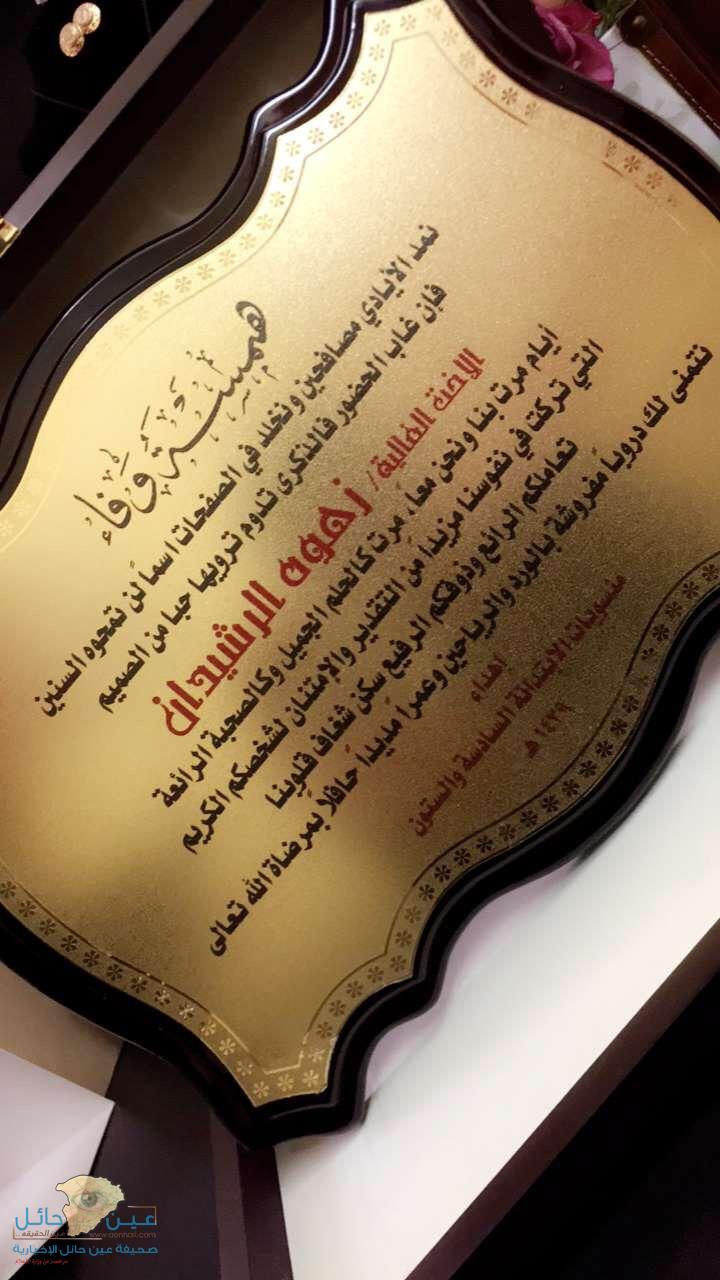 همسة وفاء
نمد الأيادي مصافحين ونخلد في الصفحات اسماً لن تمحوه السنين
فإن غاب الحضور فالذكرى تدوم نرويها حبا من الصميم
الاخت الغالية / زهوه الرشيدان
أيام مرت بنا ونحن معاً، مرت كالحلم الجميل وكالصحبة الرائعة
التي تركت في نفوسنا مزيداً من التقدير والإمتنان لشخصكم الكريم
تعاملكم الرائع وذوقكم الرفيع سكن شغاف قلوبنا
نتمنى لك دروباً مفروشة بالورد والرياحين وعمراً مديداً حافلاً بمرضاة الله تعالى
اهداء
منسوبات الابتدائة السادسة والستون
١٤٣٩ هـ
عين حائل
www.aenhail.com
صحيفة عين حائل الإخبارية